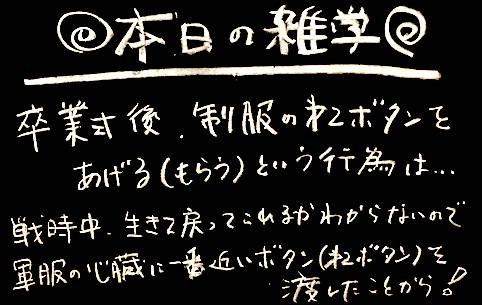 本日の雑学
卒業式後、制服の第2ボタンを
あげる(もらう)という行為は…
戦時中、生きて戻ってこれるかわからないので
軍服の心臓に一番近いボタン(第2ボタン)を
渡したことから!